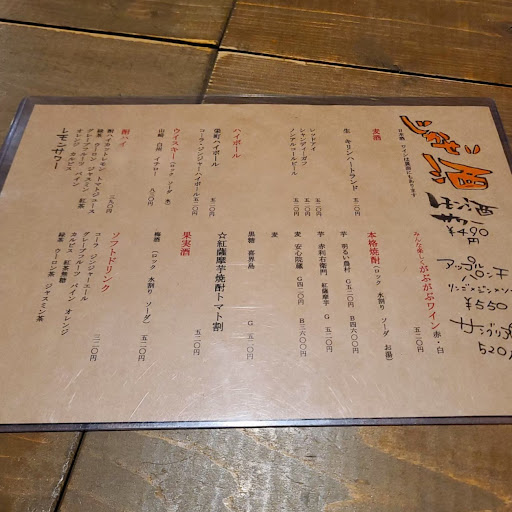 酒
日本酒 ワインは裏面にもあります
麦酒
生 キリンハートランド 五二〇円
レッドアイ 五二〇円
シャンディーガフ 五二〇円
ノンアルコールビール
ハイボール
栄町ハイボール 五二〇円
コーラ・ジンジャーハイボール 五二〇円
ウイスキー(ロック ソーダ 水)
山崎 白州 イチロー 八二〇円
酎ハイ
酎ハイカットレモン トマトジュース 三九〇円
緑茶 ウーロン ジャスミン 紅茶
グレープフルーツ パイン
オレンジ カルピス
レモンサワー
¥490円
アップル
¥550
520
みんな楽しくがぶがぶワイン 赤・白
本格焼酎(ロック 水割り ソーダ お湯)
芋 明るい農村 G五二〇円 B四六〇〇円
芋 赤利右衛門 紅薩摩芋 G
麦 安心院蔵 G四二〇円 B三六〇〇円
麦 B
黒糖 喜界島 G 五二〇円
☆紅薩摩芋焼酎トマト割 五二〇円
果実酒
梅酒 (ロック 水割り ソーダ) 五二〇円
ソフトドリンク
コーラ ジンジャーエール 三二〇円
グレープフルーツ パイン オレンジ
カルピス 紅茶無糖
緑茶 ウーロン茶 ジャスミン茶